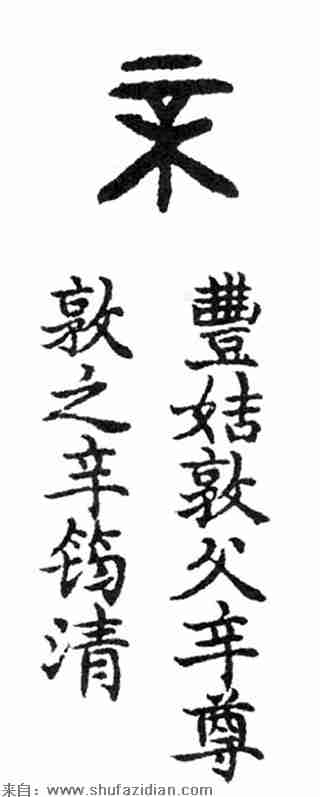 辛
豐姞敦父辛尊
敦之辛筠清
来自：www.shufazidian.com